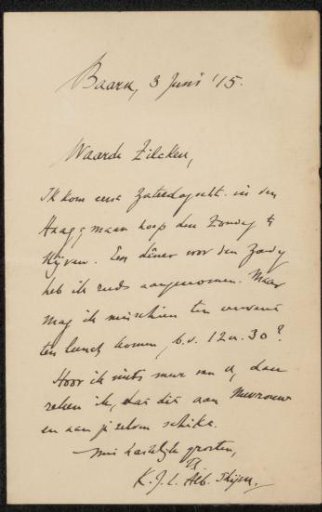 Baarn, 3 Juni '15.
Waarde Zilcken,
Ik kom eerst Zaterdagacht. in den
Haag, maar hoop den Zondag te
blijven. Een diner voor den Zondag
heb ik reeds aangenomen. Maar
mag ik misschien ten uwent
ten lunch komen, b.v. 12 u. 30?
Hoor ik niets meer van U, dan
reken ik, dat dit aan Mevrouw
en aan jezelven schikt.
Met hartelijke groeten,
K. J. L. Alb. Thijm.